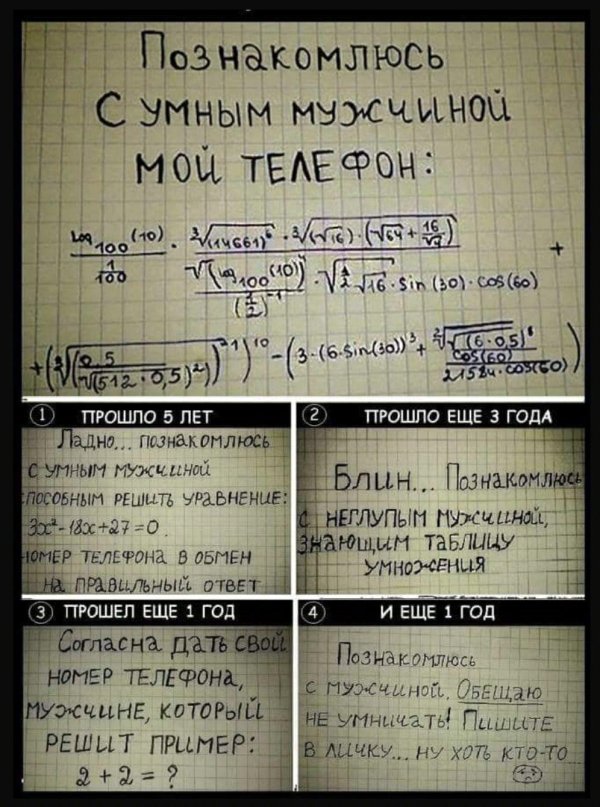 Познакомлюсь
с умным мужчиной
мой телефон:
log₁₀₀(10) / (1/100) · ∛(14661)⁶ · ∛(√16) · (√64 + 16/√7) / (√(log₁₀₀(10)) / (1/2)⁻¹ · √(1/2 √16) · sin(30) · cos(60)) +
+ (∛((0,5 / √(512 · 0,5)²))²¹)¹⁰ − (3 · (6 · sin(30))³ + ∛(√(6 · 0,5)⁸ / cos(60)) / 21524 · cos(60))
1 ПРОШЛО 5 ЛЕТ
Ладно... познакомлюсь
с умным мужчиной
способным решить уравнение:
3x²-18x+27=0.
номер телефона в обмен
на правильный ответ
2 ПРОШЛО ЕЩЕ 3 ГОДА
Блин... Познакомлюсь
с неглупым мужчиной,
знающим таблицу
умножения
3 ПРОШЕЛ ЕЩЕ 1 ГОД
Согласна дать свой
номер телефона,
мужчине, который
решит пример:
2+2=?
4 И ЕЩЕ 1 ГОД
Познакомлюсь
с мужчиной. Обещаю
не умничать! Пишите
в личку... ну хоть кто-то